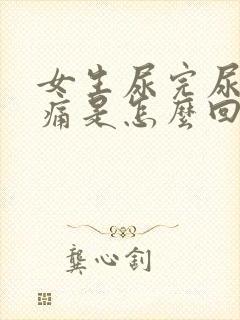 女生尿完尿
痛是怎麼回
龔心釗